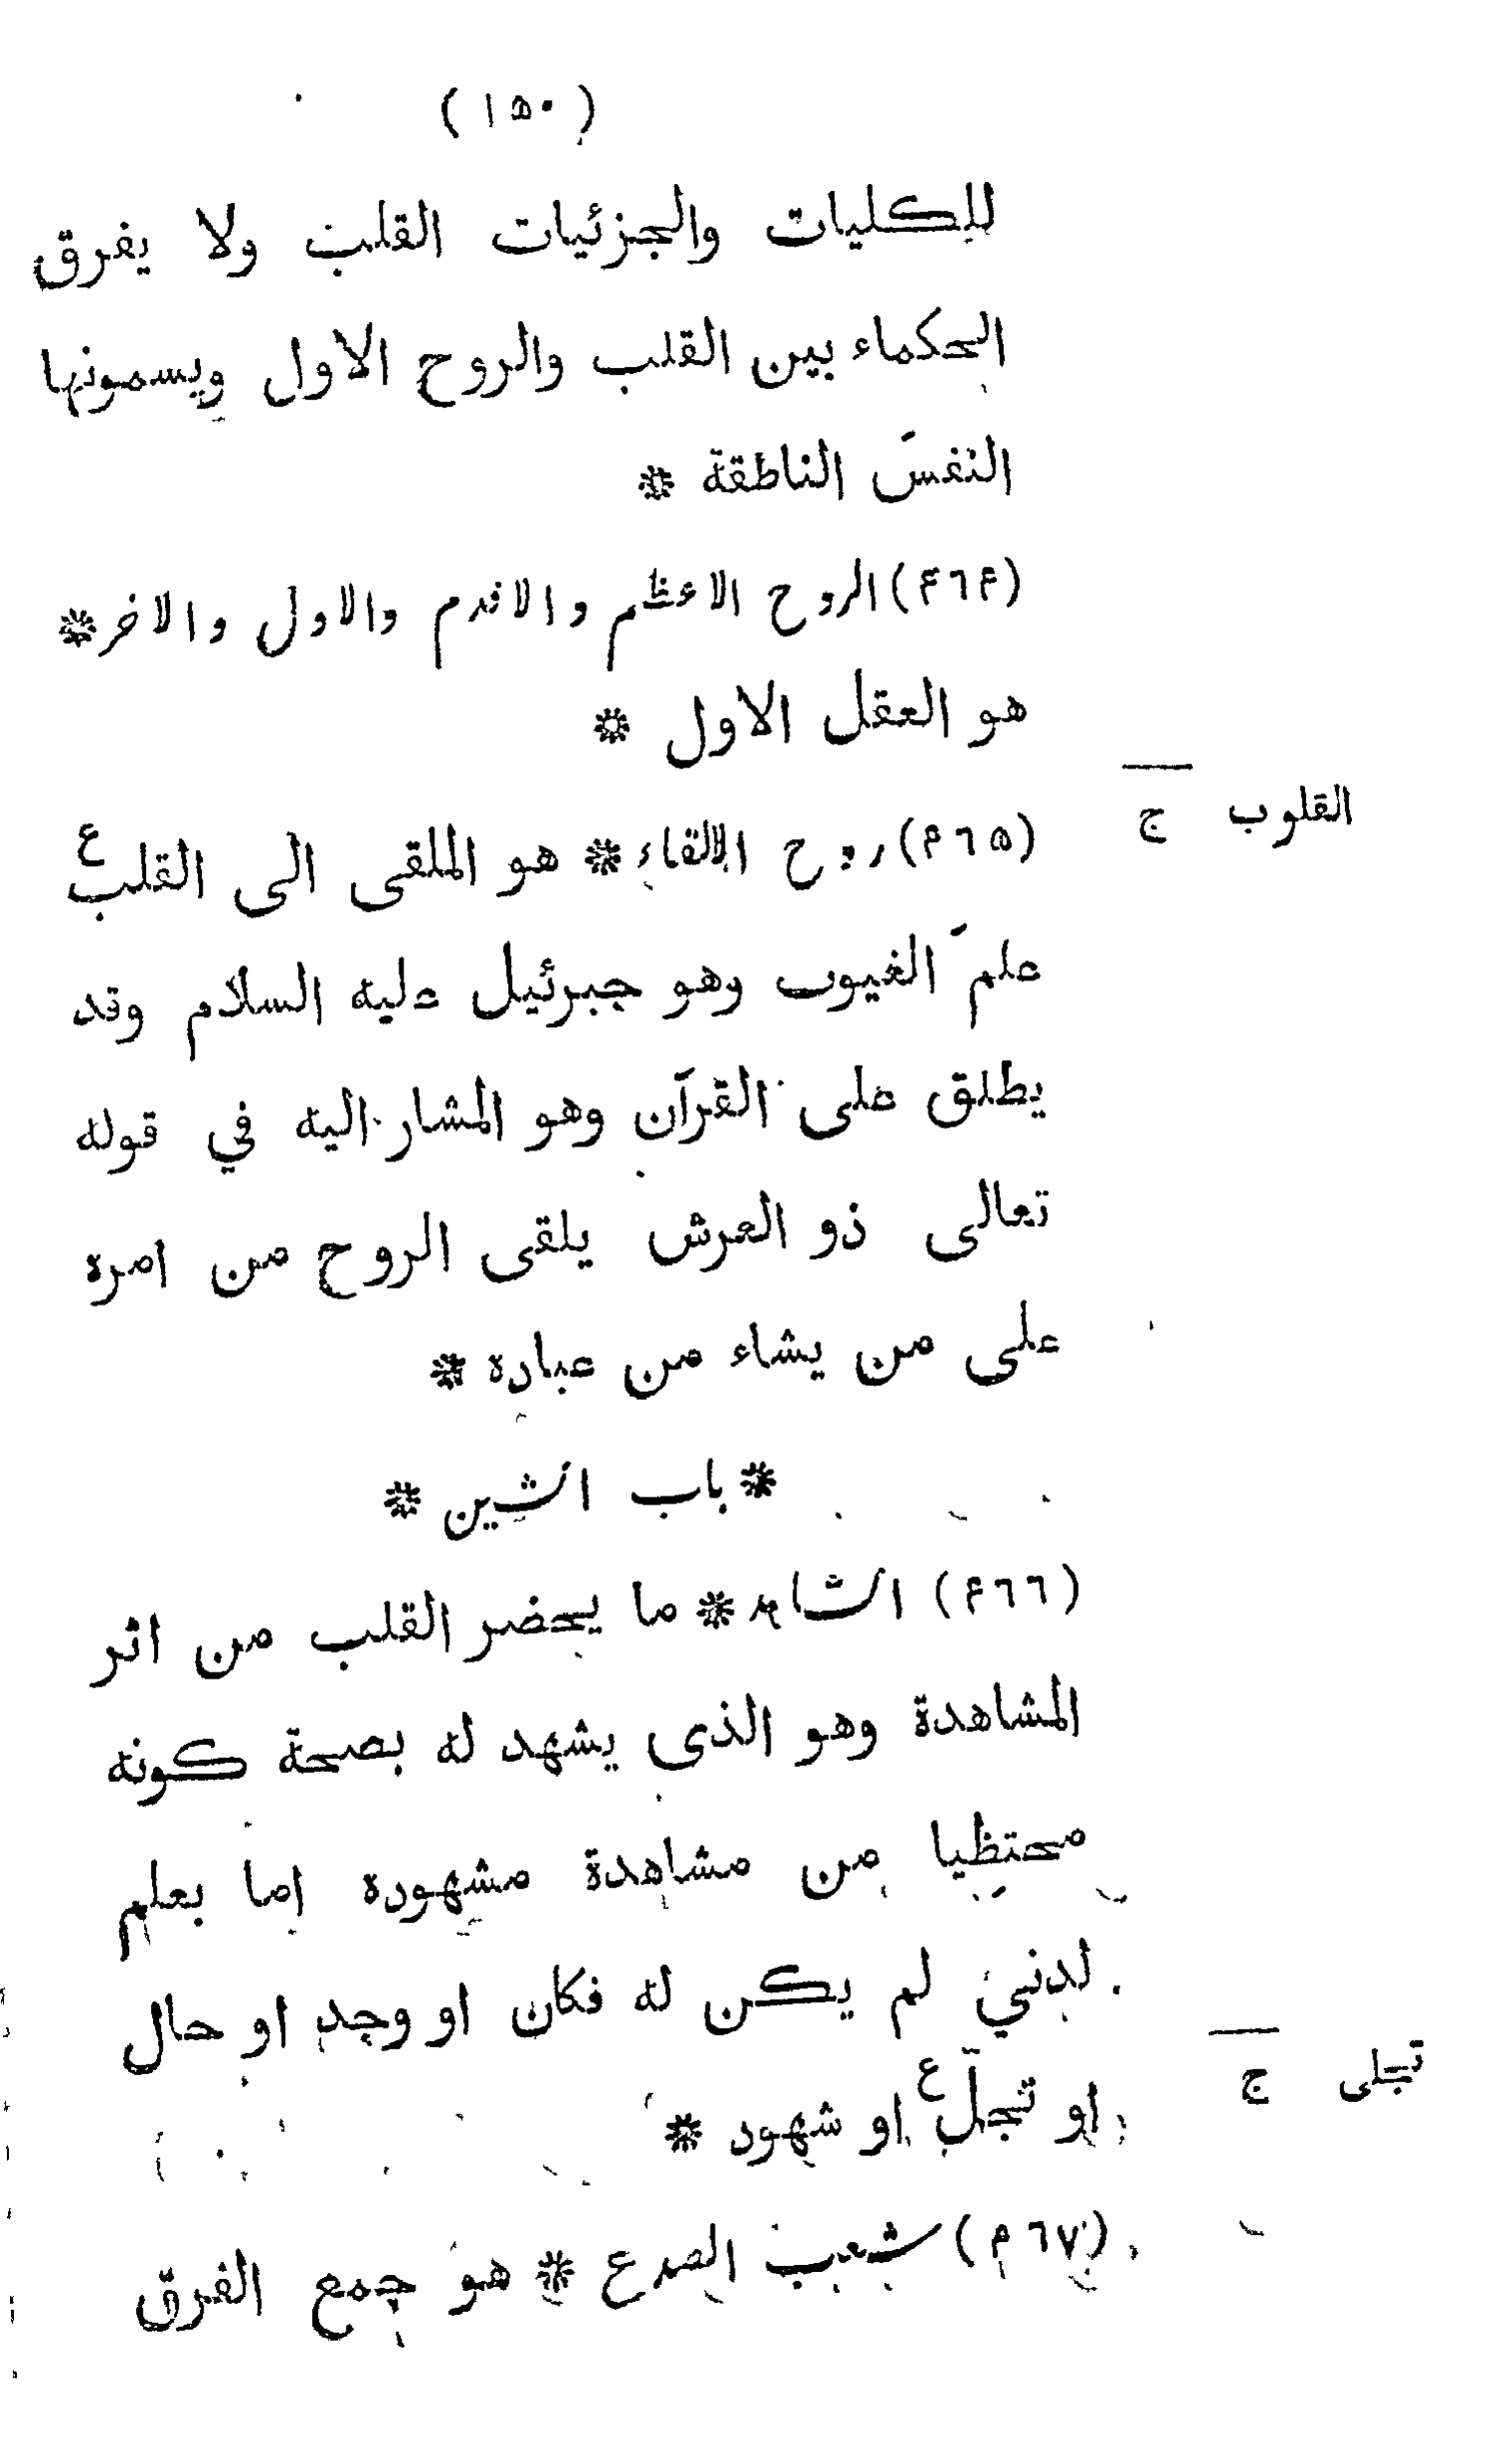 (١٥٠)
للكليات والجزئيات القلب ولا يفرق
الحكماء بين القلب والروح الاول ويسمونها
النفسَ الناطقة *
(۴٦۴) الروح الاعظم والاقدم والاول والاخر *
هو العقل الاول *
(۴٦٥) روح الالقاء * هو الملقى الى القلب ع
علمَ الغيوب وهو جبرئيل عليه السلام وقد
يطلق على القرآن وهو المشار اليه في قوله
تعالى ذو العرش يلقى الروح من امره
على من يشاء من عباده *
* باب الشين *
(۴٦٦) الشاهد * ما يحضر القلب من اثر
المشاهدة وهو الذى يشهد له بصحة كونه
محتظيا من مشاهدة مشهوده اما بعلم
لدني لم يكن له فكان او وجد او حال
او تجلّ ع او شهود *
(۴٦٧) شعب الصدع * هو جمع الفرق
القلوب ج
تجلى ج